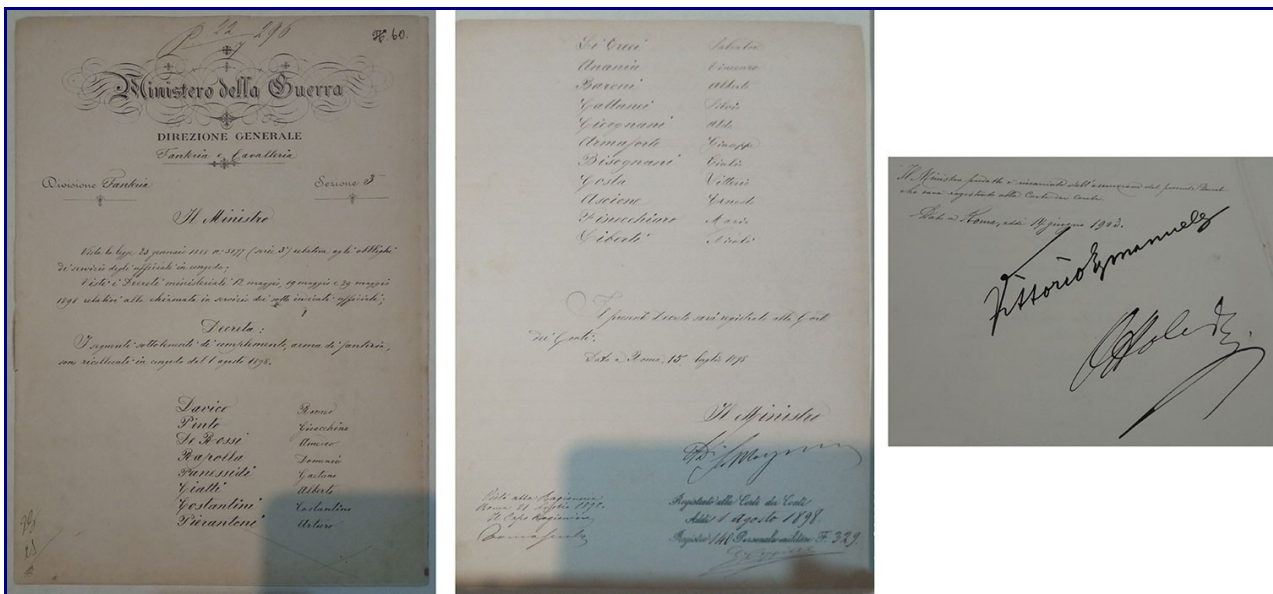 22
296
7
H. 60.
Ministero della Guerra
DIREZIONE GENERALE
Fanteria e Cavalleria
Divisione Fanteria
Sezione 3
Il Ministro
Vista la legge 23 gennaio n. (serie 3) relativa agli obblighi
di servizio degli ufficiali in congedo;
Visti i Decreti ministeriali 12 maggio, 19 maggio e 29 maggio
1898 relativi alla chiamata in servizio dei sotto indicati ufficiali;
Decreta:
I seguenti sottotenenti di complemento, arma di fanteria,
sono ricollocati in congedo dal 1 agosto 1898.
Davico
Pinto Gioacchino
De Rossi Amedeo
Rapolla Domenico
Panessidi Gaetano
Giatti Alberto
Costantini Costantino
Pierantoni Arturo
Salvatore
Anania
Baroni Alberto
Cattanei Silvio
Cicognani Aldo
Armaforte Giuseppe
Bisognani
Costa Vittorio
Ascione Ernesto
Finocchiaro Mario
Ciberti Nicola
Il presente Decreto sarà registrato alla Corte
dei Conti.
Dato a Roma, 15 luglio 1898
Il Ministro
Visto alla Ragioneria
Roma 21 luglio 1898
Il Capo Ragioniere
Registrato alla Corte dei Conti
Addì 1 Agosto 1898.
Registro 140 Personale militare F. 329.
Il Ministro predetto è incaricato dell'esecuzione del presente Decreto
che sarà registrato alla Corte dei Conti.
Dato a Roma, addì giugno 1903.
Vittorio Emanuele